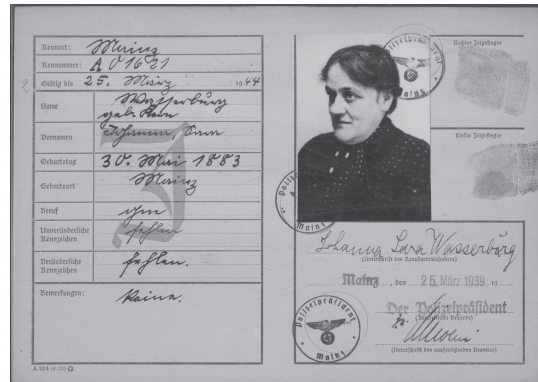 Kennort: Mainz
Kennummer: A 01621
Gültig bis 25. März 1944
Name Wasserburg
geb.
Vornamen Johanna, Sara
Geburtstag 30. Mai 1883
Geburtsort Mainz
Beruf ohne
Unveränderliche Kennzeichen fehlen
Veränderliche Kennzeichen fehlen.
Bemerkungen: Keine.
A 104
J
Rechter Zeigefinger
Linker Zeigefinger
Polizeipräsident
Mainz
Polizeipräsident
Mainz
Johanna Sara Wasserburg
(Unterschrift des Kennkarteninhabers)
Mainz, den 25. März 1939 19
Der Polizeipräsident
(Ausstellende Behörde)
Polizeipräsident
Mainz
(Unterschrift des ausfertigenden Beamten)